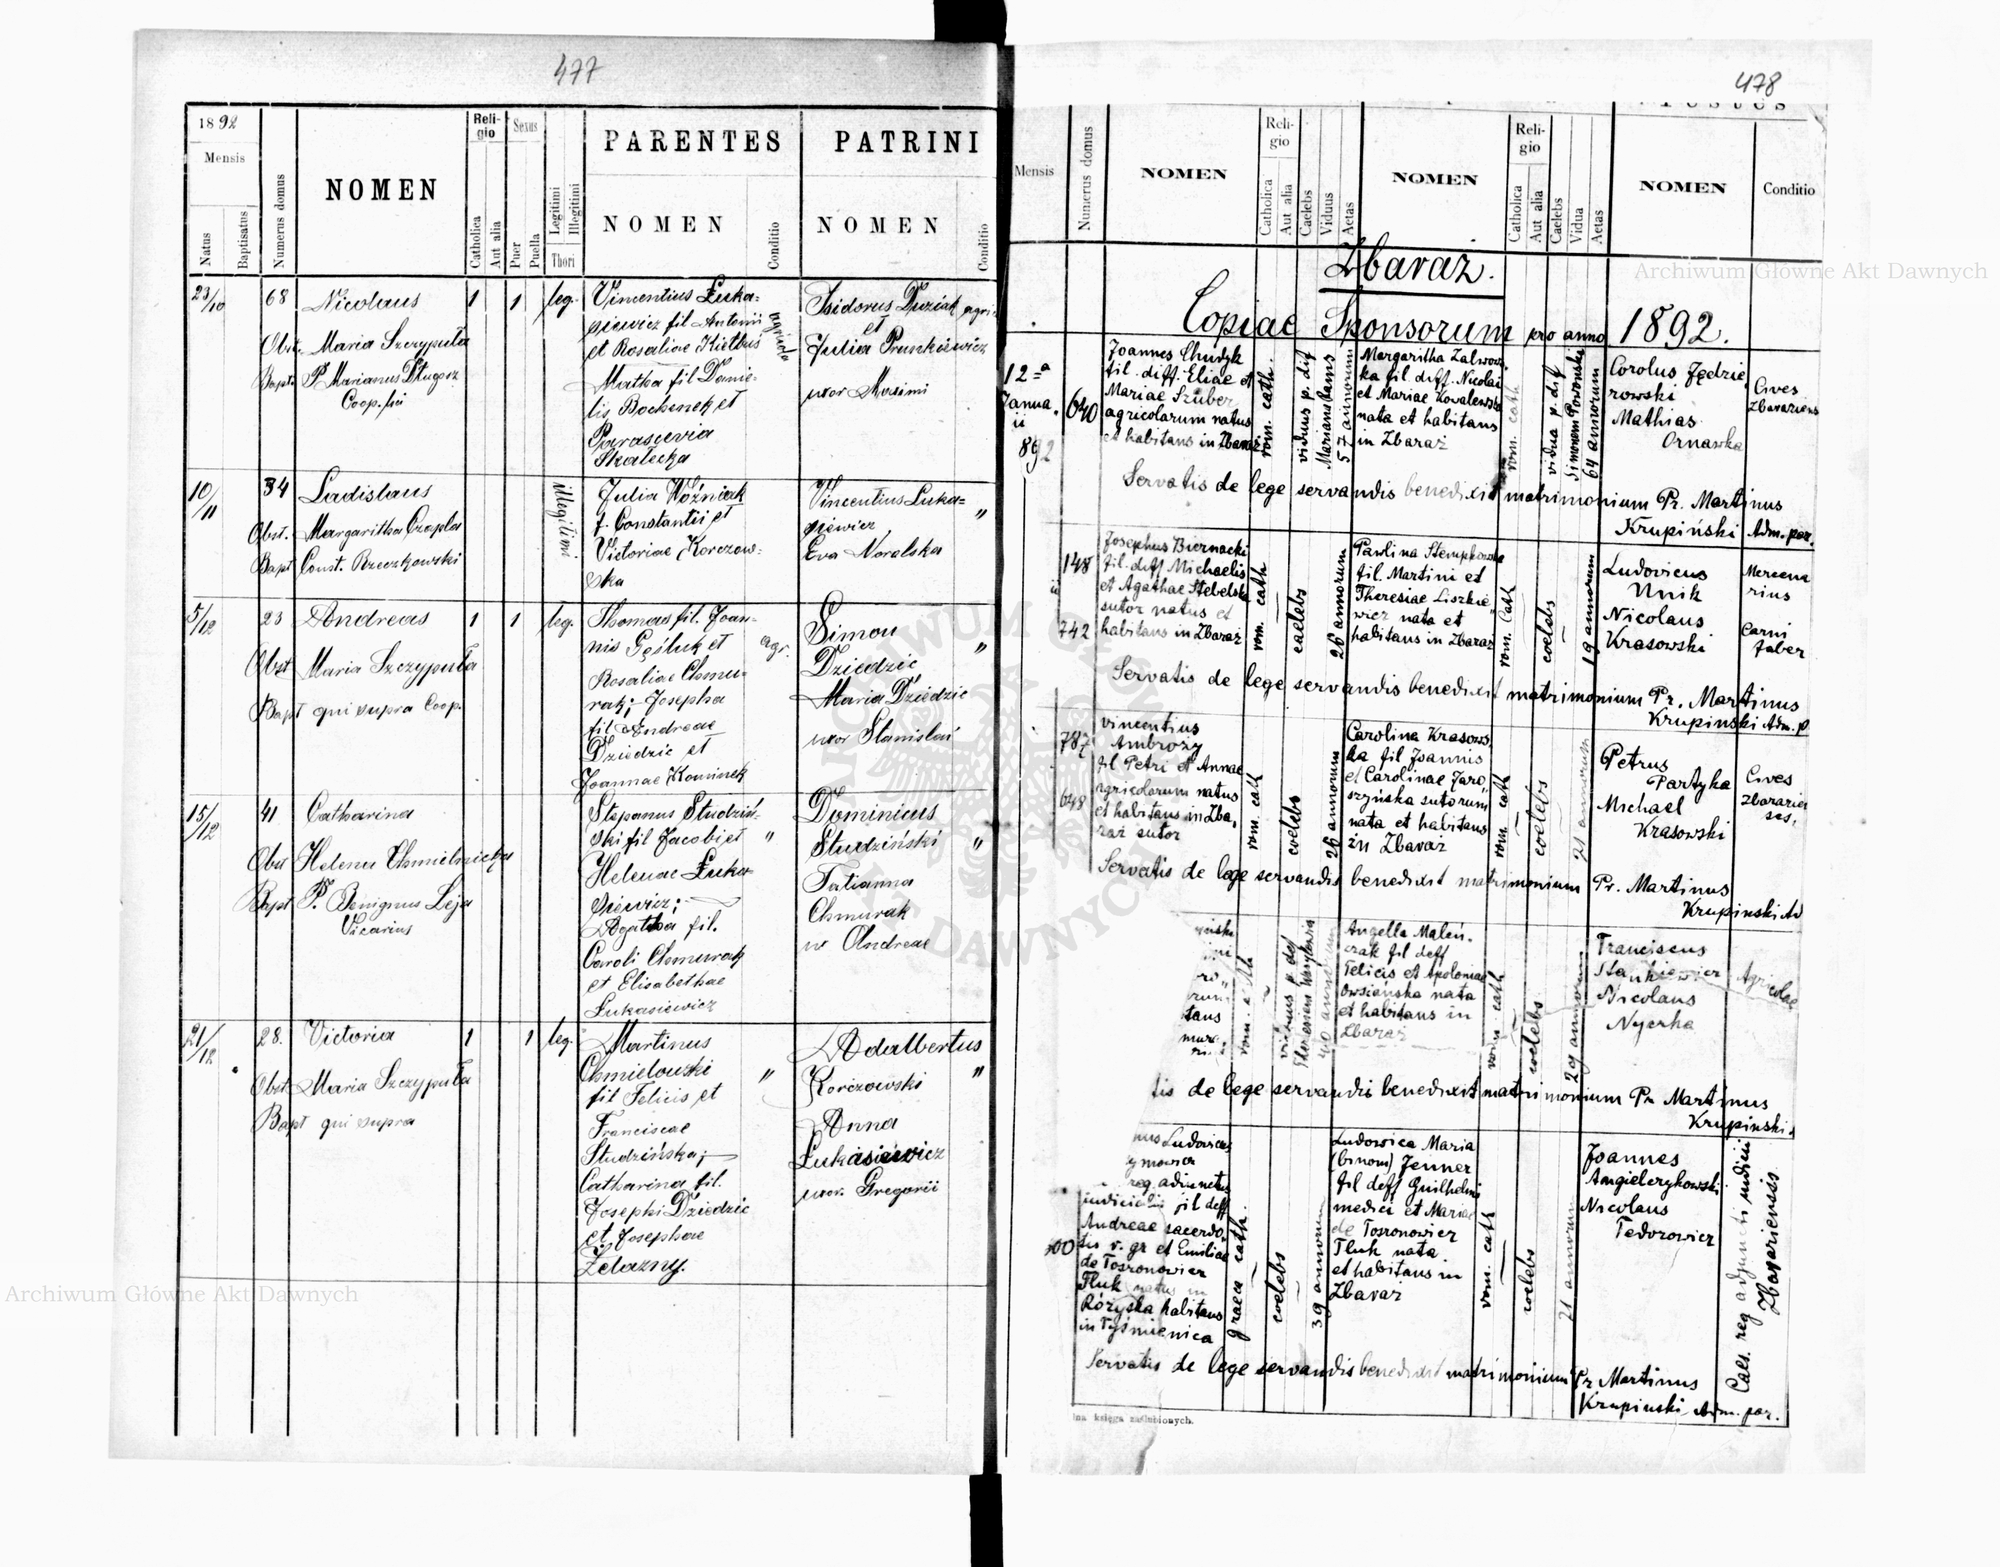 477
1892
Mensis
Natus
Baptisatus
Numerus domus
NOMEN
Religio
Catholica
Aut alia
Sexus
Puer
Puella
Legitimi
Illegitimi
Thori
PARENTES
NOMEN
Conditio
PATRINI
NOMEN
Conditio
23/10
68
Nicolaus
1
1
leg.
Obst. Maria Szczyputa
Bapt. P. Marianus Długosz
Coop.
Vincentius Łuka=
siewicz fil Antonii
et Rosaliae Kiełbus
Martha fil Danie=
lis Bochenek et
Parascevia
Skałecka
agricola
Isidorus Duziak agri
et
Julia Prunkiewicz
uxor Maximi
10/11
34
Ladislaus
illegitimi
Obst. Margaritha Czapla
Bapt Const. Rzeczkowski
Julia Woźniak
f. Constantii et
Victoriae Korczow=
ska
Vincentius Luka=
siewicz "
Eva Noralska
5/12
23
Andreas
1
1
leg.
Obst Maria Szczyputa
Bapt qui supra Coop.
Thomas fil. Joan=
nis Gęśluk et
Rosaliae Chmu=
rak; Josepha
fil Andreae
Dziedzic et
Joannae Kominek
agr.
Simon
Dziedzic "
Maria Dziedzic
uxor Stanislai
15/12
41
Catharina
Obst Helena Chmielnicka
Bapt P. Benignus Leja
Vicarius
Stepanus Studziń=
ski fil Jacobi et "
Helenae Łuka=
siewicz;
Agatha fil.
Caroli Chmurak
et Elisabethae
Lukasiewicz
Dominicus
Studziński "
Tatianna
Chmurak
ux Andreae
21/12
28.
Victoria
1
1
leg.
Obst Maria Szczyputa
Bapt qui supra
Martinus
Chmielowski "
fil Felicis et
Franciscae
Studzińska;
Catharina fil.
Josephi Dziedzic
et Josephae
Żelazny.
Adalbertus
Korczowski "
Anna
Łukasiewicz
uxor. Gregorii
478
Testes
Mensis
Numerus domus
NOMEN
Religio
Catholica
Aut alia
Caelebs
Viduus
Aetas
NOMEN
Religio
Catholica
Aut alia
Caelebs
Vidua
Aetas
NOMEN
Conditio
Zbaraż.
Copiae Sponsorum pro anno 1892.
12=a
Janua.
ii
892
640
Joannes Chudyk
fil. diff. Eliae et
Mariae Szuber
agricolarum natus
et habitans in Zbaraż
rom. cath.
viduus p. def
57 annorum
Margaritha Zalwow
ka fil. deff. Nicolai
et Mariae Kowalewska
nata et habitans
in Zbaraż
rom. cath
vidua p. def
Simonem Powonski
64 annorum
Carolus Jędzie
rowski
Mathias
Ornawka
Cives
Zbarariens
Servatis de lege servandis benedixit matrimonium Pr. Martinus
Krupiński Adm. par.
148
ii
742
Josephus Biernacki
fil. diff Michaelis
et Agathae Stebelska
sutor natus et
habitans in Zbaraż
rom. cath
caelebs
26 annorum
Pavlina Stempkowska
fil. Martini et
Theresiae Liszkie"
wicz nata et
habitans in Zbaraż
rom. cath
coelebs
19 annorum
Ludovicus
Unik
Nicolaus
Krasowski
Mercena
rius
Carni
faber
Servatis de lege servandis benedixit matrimonium Pr. Martinus
Krupinski Adm. p
787
648
Vincentius
Ambroży
fil Petri et Annae
agricolarum natus
et habitans in Zba,
raż sutor
rom. cath
coelebs
26 annorum
Carolina Krasows,
ka fil Joannis
et Carolinae Jaro,
szyńska sutorum
nata et habitans
in Zbaraż
rom. cath
coelebs
21 annorum
Petrus
Partyka
Michael
Krasowski
Cives
Zbararien
ses.
Servatis de lege servandis benedixit matrimonium Pr. Martinus
Krupinski Ad
viduus p. def
40 annorum
Angella Maleń-
czak fil deff
Felicis et Apoloniae
Owsiańska nata
et habitans in
Zbaraż
rom. cath
coelebs
29 annorum
Franciscus
Stankiewicz
Nicolaus
Nyczka
Agricolae
tis de lege servandis benedixit matrimonium Pr Martinus
Krupinski
nus Ludovicus
ymowicz
reg. adiunctus
iudicialis fil deff
Andreae sacerdo,
tis r. gr et Emiliae
de Tosronowicz
Fluk natus in
Różyska habitans
in Tyśmienica
graeca cath.
coelebs
39 annorum
Ludowica Maria
(binom) Jenner
fil deff Guilhelmi
medici et Mariae
de Tosronowicz
Fluk nata
et habitans in
Zbaraż
rom. cath
coelebs
21 annorum
Joannes
Angielczykowski
Nicolaus
Tedorowicz
Caes. reg adjuncti judicii
Zbarariensis
Servatis de lege servandis benedixit matrimonium Pr Martinus
Krupinski Adm. par.
lna księga zaślubionych.
Archiwum Główne Akt Dawnych
Archiwum Główne Akt Dawnych
ARCHIWUM GŁÓWNE
AKT DAWNYCH